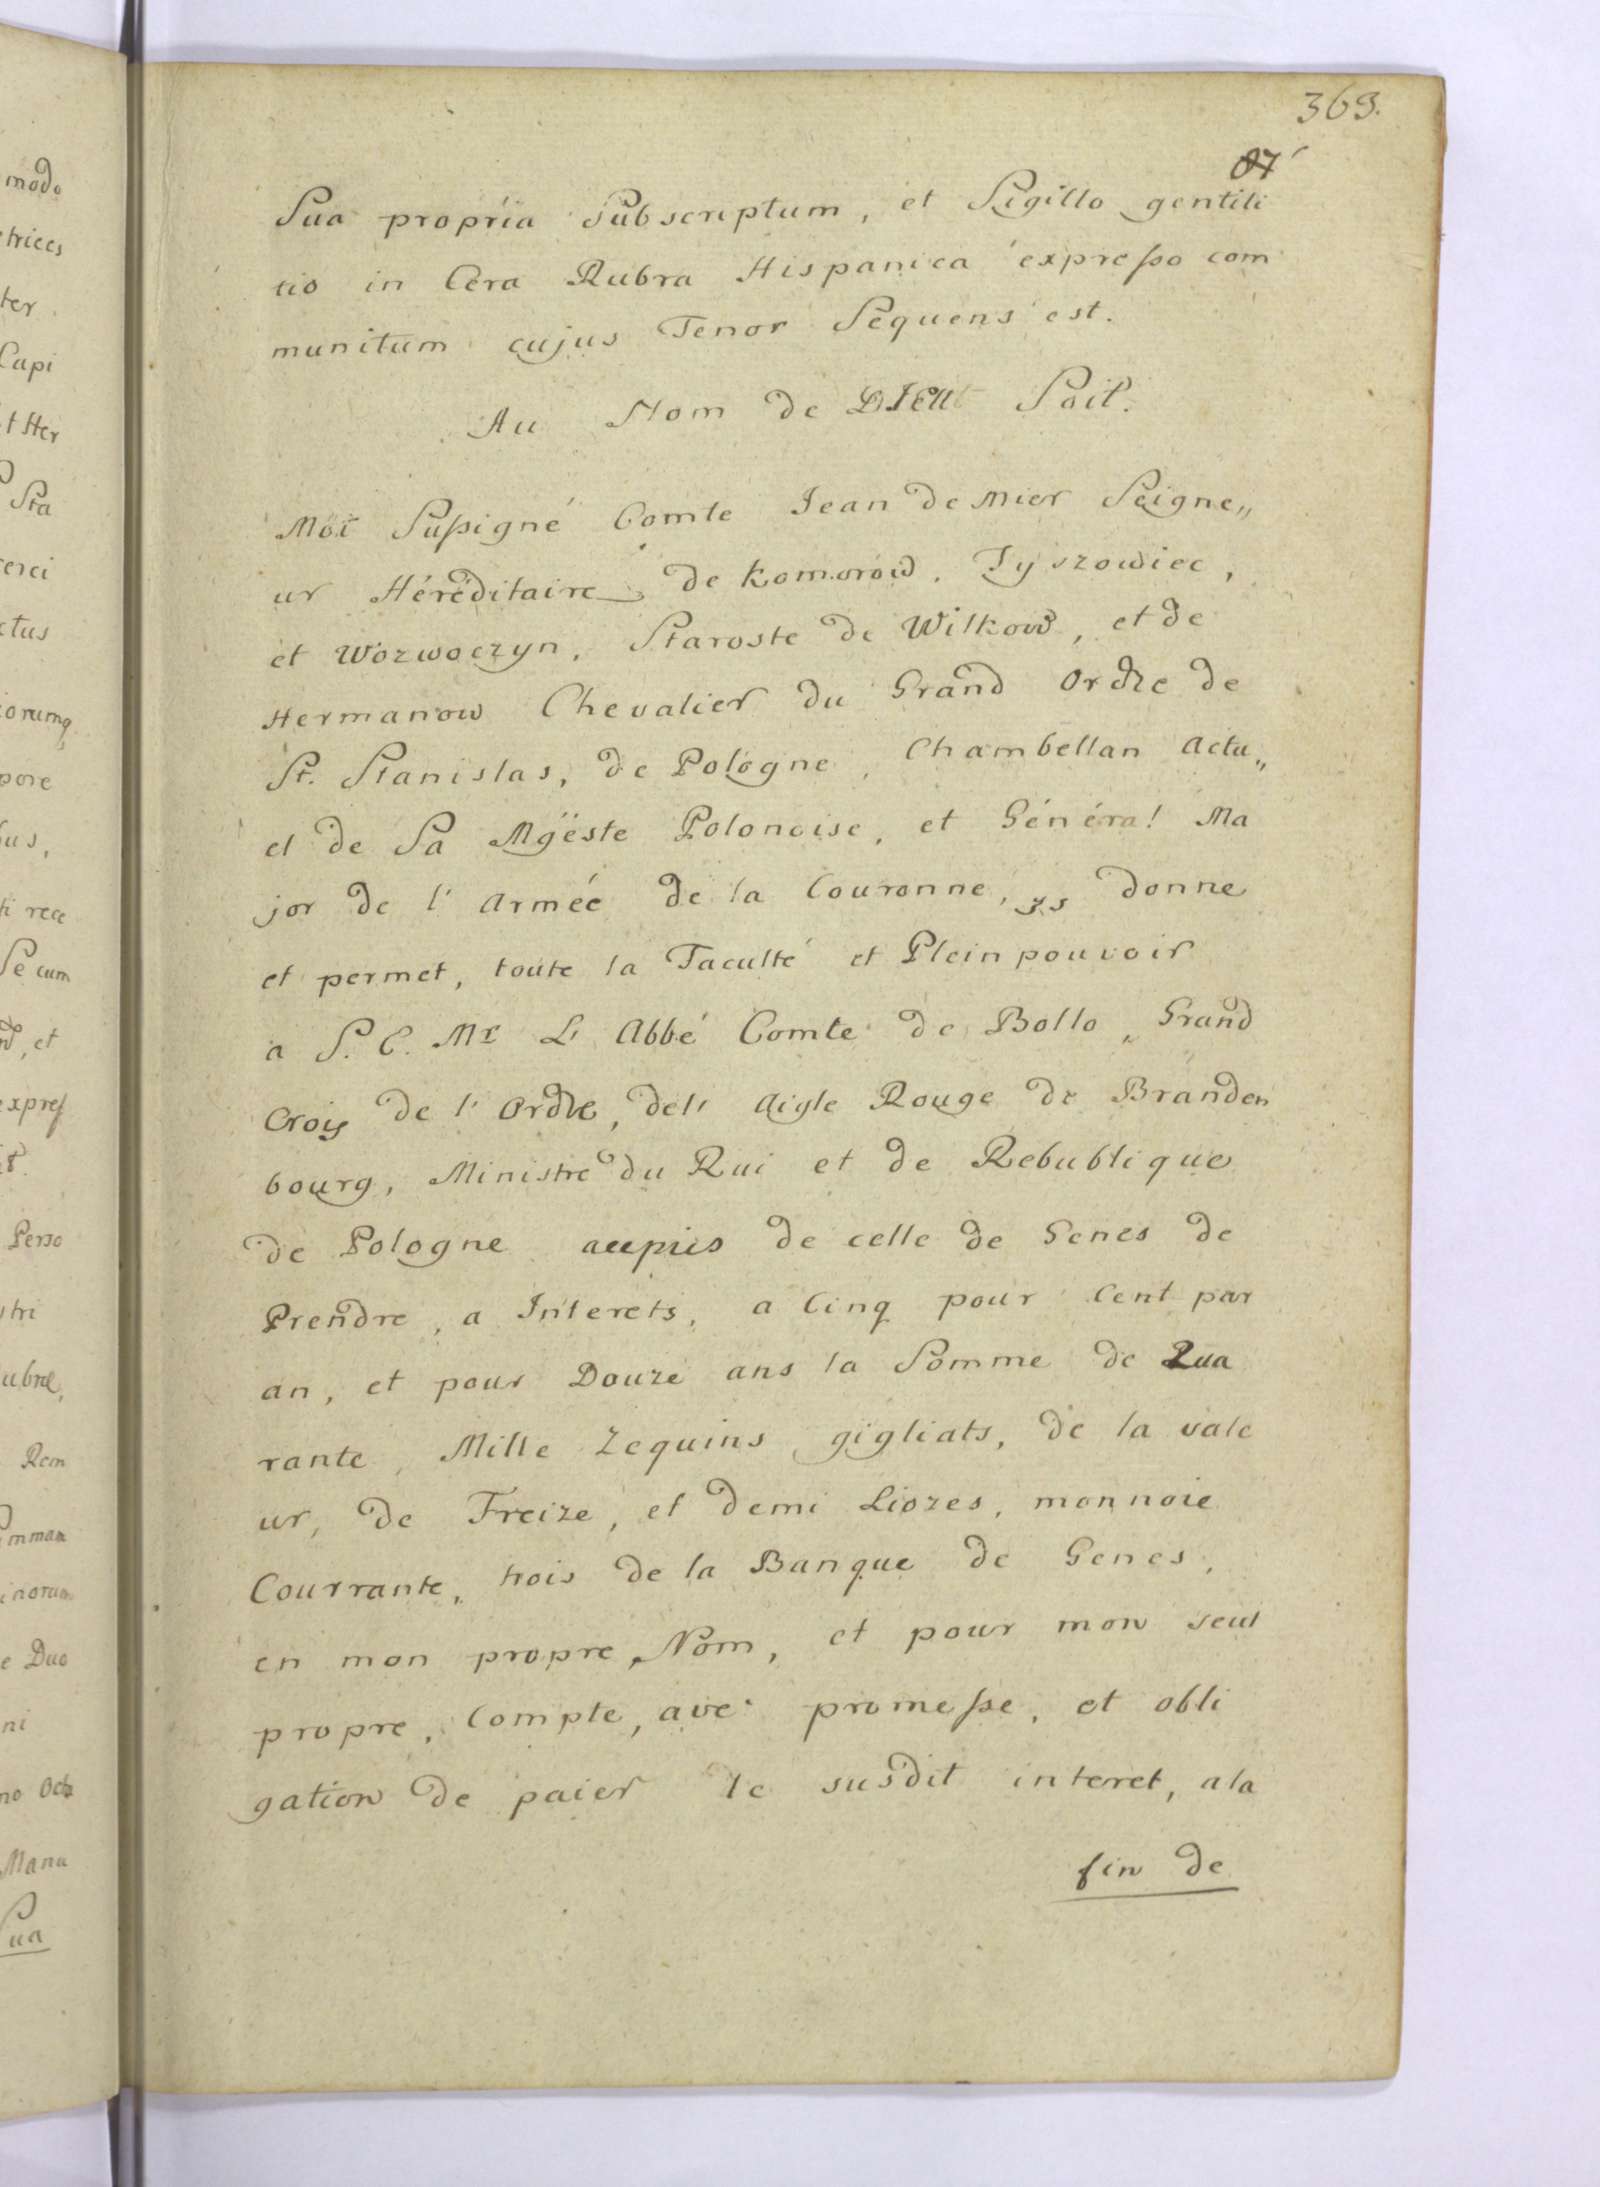 369.
87
Sua propria Subscriptum, et Sigillo gentili
tio in Cera Rubra Hispanica expresso com
munitum cujus Tenor Sequens est.
Au Nom de DIEU Soit.
Moi Sussigné Comte Jean de Mier Seigne„
ur Héréditaire de Komorow, Tyszowiec,
et Wozwoczyn, Staroste de Wilkow, et de
Hermanow Chevalier du Grand Ordre de
St. Stanislas, de Pologne, Chambellan Actu„
el de Sa Mgëste Polonoise, et Général Ma
jor de l' Armée de la Couronne, donne
et permet, toute la Faculté et Plein pouvoir
a S. E. Mr L' Abbé Comte de Bollo, Grand
Croix de l' Ordre, del' Aigle Rouge de Branden
bourg, Ministre du Rui et de Rebublique
de Pologne aupres de celle de Genes de
Prendre, a Interets, a Cinq pour Cent par
an, et pour Douze ans la Somme de Qua
rante, Mille Zequins gigliats, de la vale
ur, de Treize, et demi Liozes, monnoie
Courrante, hois de la Banque de Genes,
en mon propre Nom, et pour mon seul
propre, Compte, avec promesse, et obli
gation de paier le susdit interet, ala
fin de
modo
trices
ter
Capi
t Her
Sta
ctus
pore
ti rece
Se cum
, et
expres
Perso
stri
ubrae,
Rem
e Duo
ni
no Octo
Manu
Sua